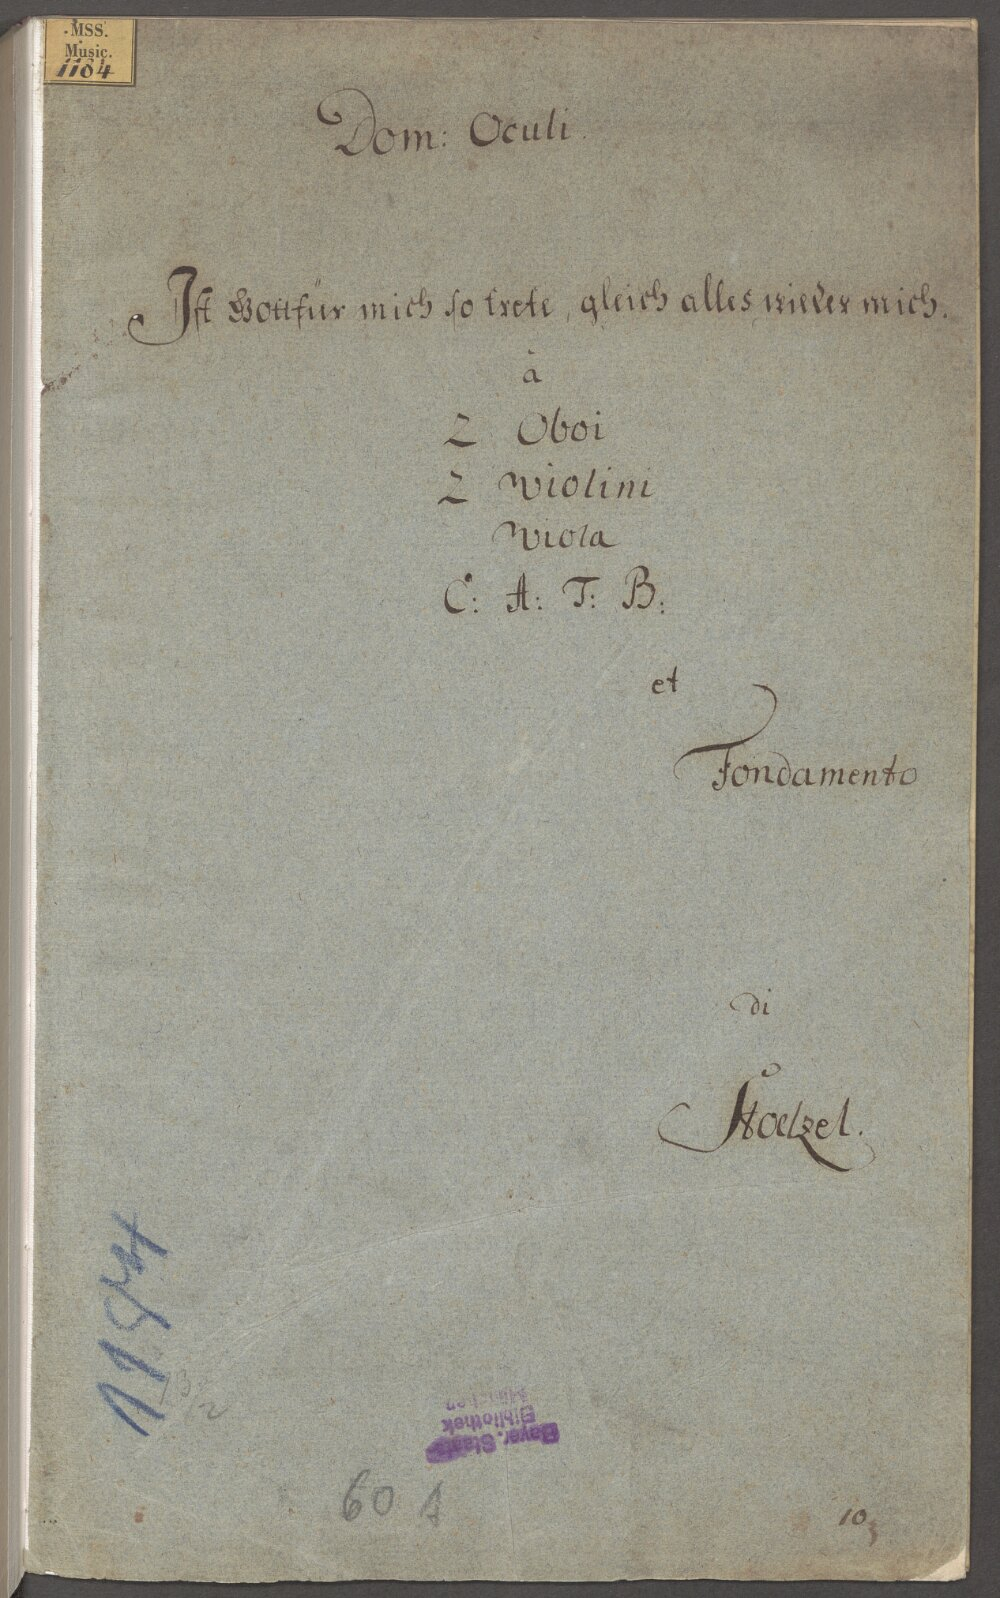 MSS.
Music.
1184
Dom: Oculi.
Ist Gott für mich so trete, gleich alles wieder mich.
à
2 Oboi
2 Violini
Viola
C: A: T: B:
et
Fondamento
di
Stoelzel.
1184
3
2
Bayer. Staats
Bibliothek
München
60 1
10